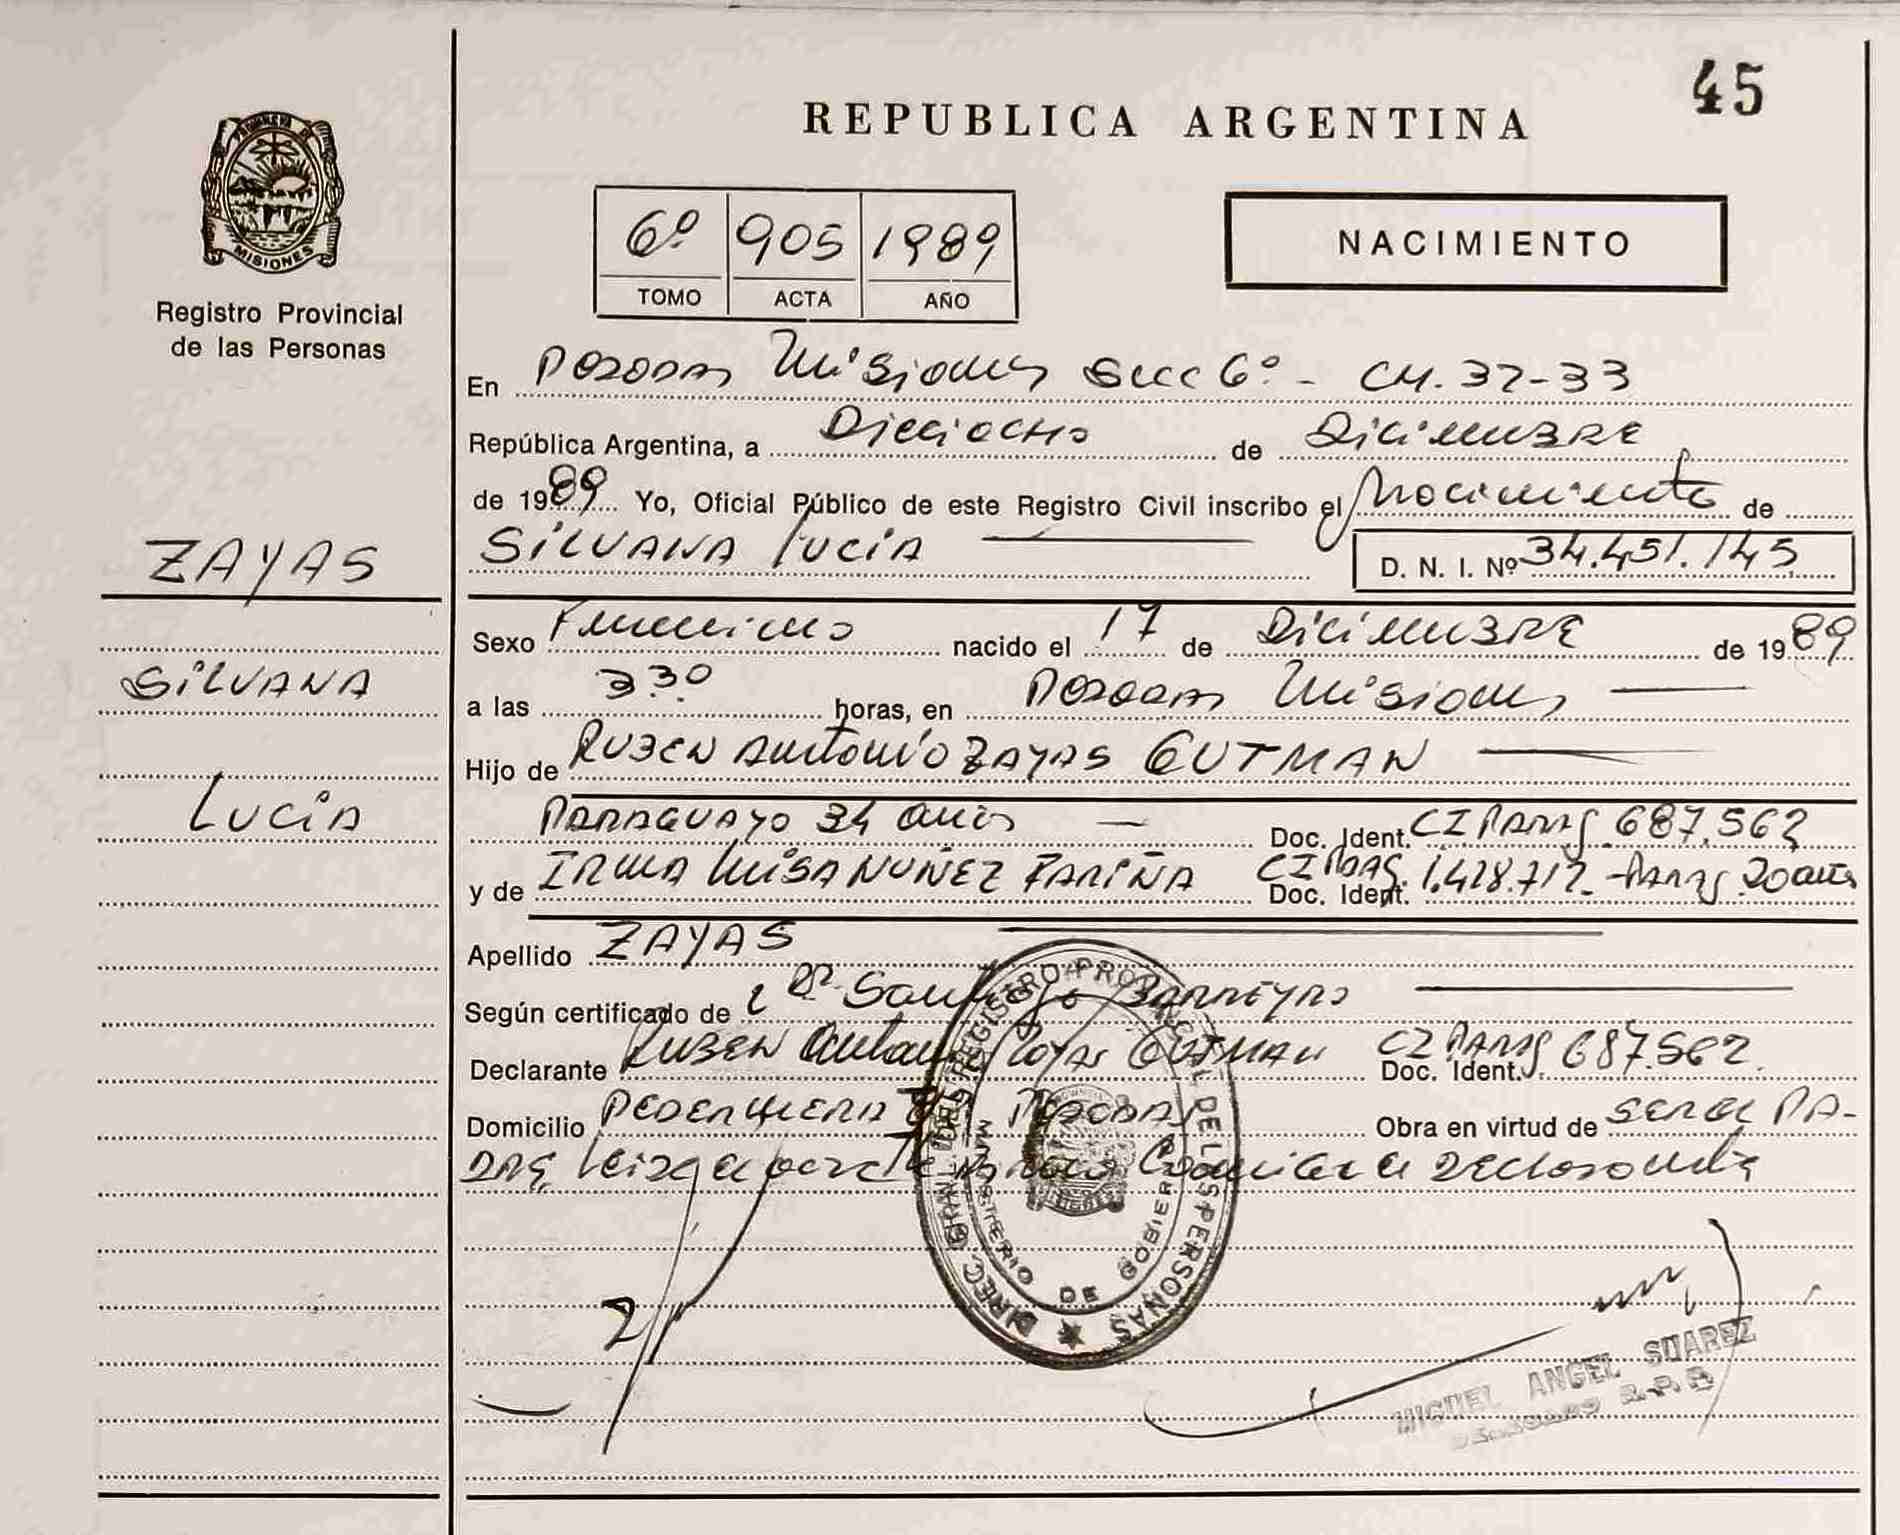 45
REPUBLICA ARGENTINA
MISIONES
Registro Provincial
de las Personas
6º 905 1989
TOMO ACTA AÑO
NACIMIENTO
En Posadas Misiones Secc 6º - CH. 32-33
República Argentina, a Dieciocho de Diciembre
de 1989 Yo, Oficial Público de este Registro Civil inscribo el Nacimiento de
ZAYAS
SILVANA LUCIA D. N. I. Nº 34.451.145
Sexo Femenino nacido el 17 de Diciembre de 1989
SILVANA
a las 3.30 horas, en Posadas Misiones
Hijo de RUBEN Antonio ZAYAS GUTMAN
LUCIA
PARAGUAYO 34 años Doc. Ident. CI PARAG 687.562
y de IRMA LUISA NUÑEZ FARIÑA Doc. Ident. 1.428.712 - PARAG 20 años
Apellido ZAYAS
Según certificado de Santiago BARREYRO
Declarante RUBEN Antonio Zayas GUTMAN Doc. Ident. CI PARAG 687.562
Domicilio Posadas Obra en virtud de SER EL PA-
DRE declarante
DIREC. GRAL. DEL REGISTRO PROVINCIAL DE LAS PERSONAS
MINISTERIO DE GOBIERNO
MIGUEL ANGEL SUAREZ